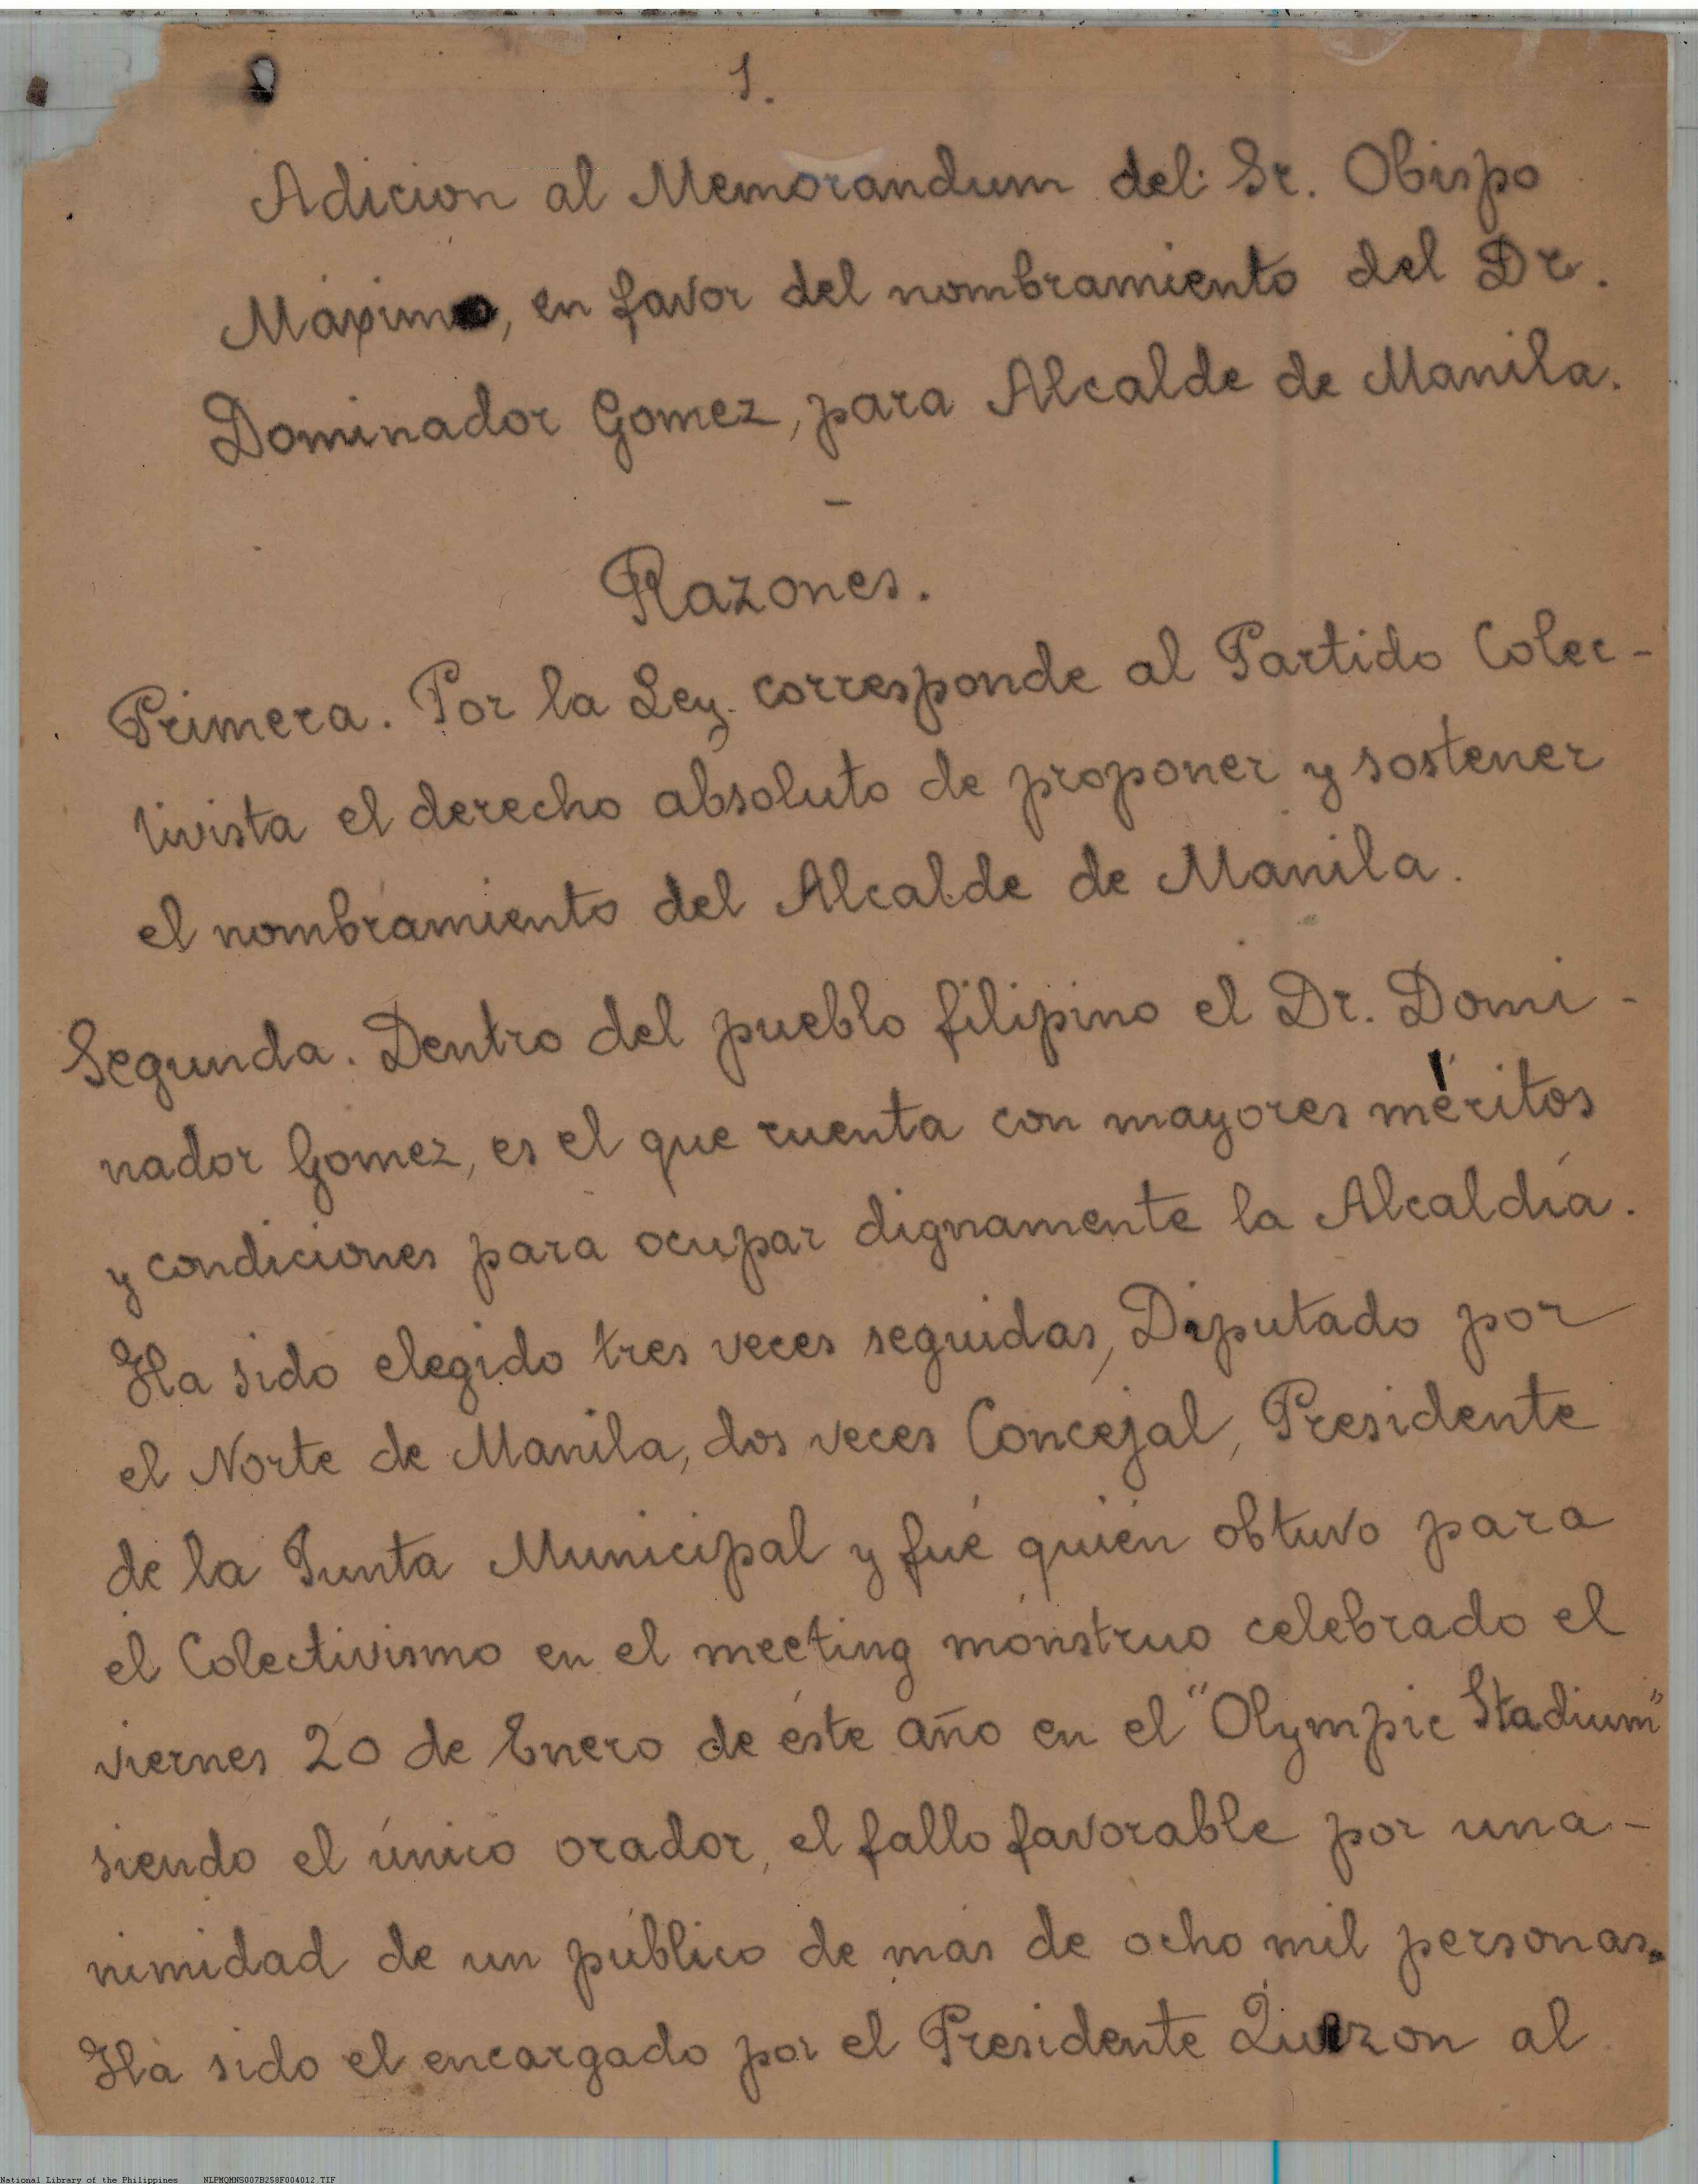 1.
Adicion al Memorandum del Sr. Obispo
Máximo, en favor del nombramiento del Dr.
Dominador Gomez, para Alcalde de Manila.
—
Razones.
Primera. Por la Ley corresponde al Partido Colec-
tivista el derecho absoluto de proponer y sostener
el nombramiento del Alcalde de Manila.
Segunda. Dentro del pueblo filipino el Dr. Domi-
nador Gomez, es el que cuenta con mayores méritos
y condiciones para ocupar dignamente la Alcaldía.
Ha sido elegido tres veces seguidas, Diputado por
el Norte de Manila, dos veces Concejal, Presidente
de la Junta Municipal y fué quién obtuvo para
el Colectivismo en el meeting mónstruo celebrado el
viernes 20 de Enero de éste año en el "Olympic Stadium"
siendo el único orador, el fallo favorable por una-
nimidad de un público de más de ocho mil personas.
Ha sido el encargado por el Presidente Quezon al
National Library of the Philippines NLPMQMNS007B258F004012.TIF